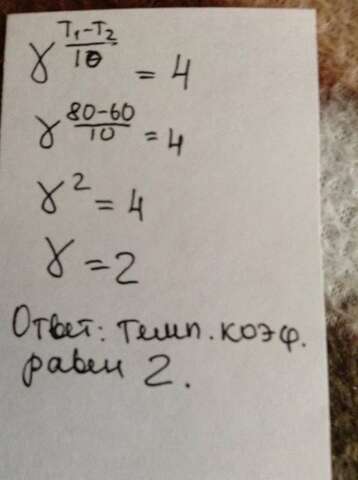 γ^((T₁-T₂)/10) = 4
γ^((80-60)/10) = 4
γ² = 4
γ = 2
Ответ: темп. коэф.
равен 2.